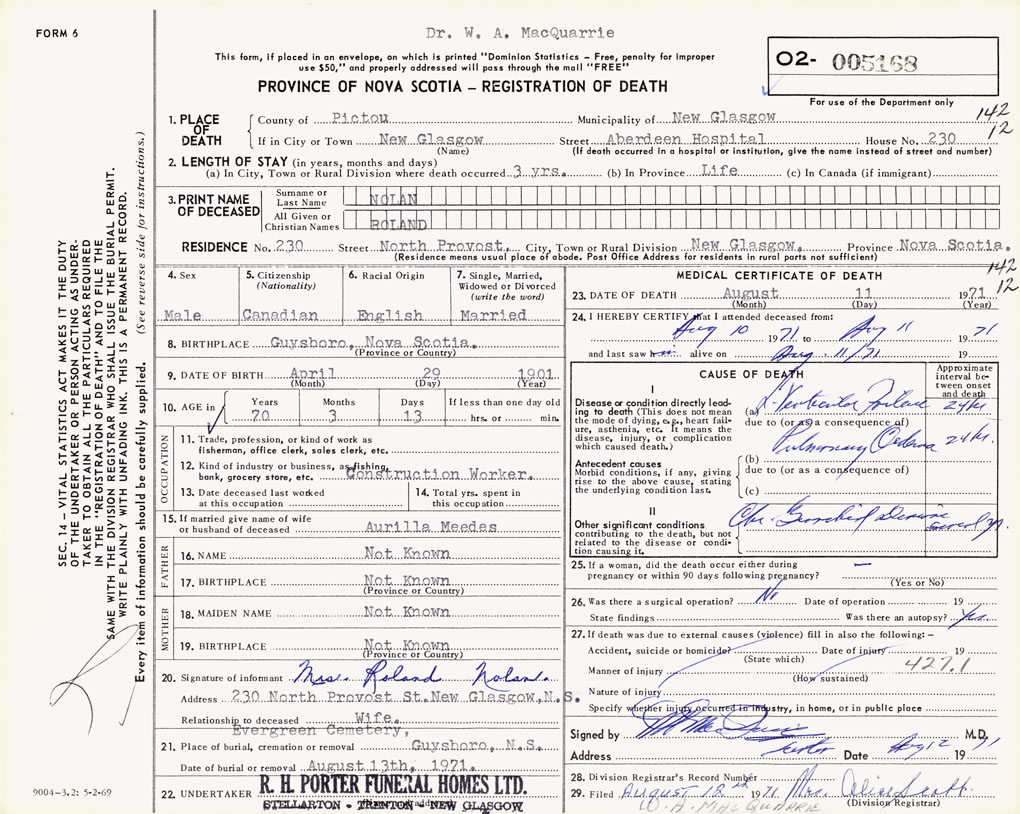 FORM 6
Dr. W. A. MacQuarrie
This form, if placed in an envelope, on which is printed "Dominion Statistics – Free, penalty for improper
use $50," and properly addressed will pass through the mail "FREE"
PROVINCE OF NOVA SCOTIA – REGISTRATION OF DEATH
02- 005168
For use of the Department only
142
12
1. PLACE OF DEATH
County of Pictou Municipality of New Glasgow
If in City or Town New Glasgow Street Aberdeen Hospital House No. 230
(Name) (If death occurred in a hospital or institution, give the name instead of street and number)
2. LENGTH OF STAY (in years, months and days)
(a) In City, Town or Rural Division where death occurred 3 yrs. (b) In Province Life (c) In Canada (if immigrant)
3. PRINT NAME OF DECEASED
Surname or Last Name NOLAN
All Given or Christian Names ROLAND
RESIDENCE No. 230 Street North Provost, City, Town or Rural Division New Glasgow, Province Nova Scotia.
(Residence means usual place of abode. Post Office Address for residents in rural parts not sufficient)
4. Sex
Male
5. Citizenship
(Nationality)
Canadian
6. Racial Origin
English
7. Single, Married,
Widowed or Divorced
(write the word)
Married
8. BIRTHPLACE Guysboro, Nova Scotia.
(Province or Country)
9. DATE OF BIRTH April 29 1901
(Month) (Day) (Year)
10. AGE in
Years Months Days If less than one day old
70 3 13 hrs. or min.
OCCUPATION
11. Trade, profession, or kind of work as
fisherman, office clerk, sales clerk, etc.
12. Kind of industry or business, as fishing,
bank, grocery store, etc. Construction Worker.
13. Date deceased last worked
at this occupation
14. Total yrs. spent in
this occupation
15. If married give name of wife
or husband of deceased Aurilla Meedes
FATHER
16. NAME Not Known
17. BIRTHPLACE Not Known
(Province or Country)
MOTHER
18. MAIDEN NAME Not Known
19. BIRTHPLACE Not Known
(Province or Country)
20. Signature of informant Mrs. Roland Nolan.
Address 230 North Provost St. New Glasgow, N.S.
Relationship to deceased Wife.
Evergreen Cemetery,
21. Place of burial, cremation or removal Guysboro, N.S.
Date of burial or removal August 13th, 1971.
22. UNDERTAKER R. H. PORTER FUNERAL HOMES LTD.
STELLARTON - TRENTON - NEW GLASGOW
MEDICAL CERTIFICATE OF DEATH
142
12
23. DATE OF DEATH August 11 1971
(Month) (Day) (Year)
24. I HEREBY CERTIFY that I attended deceased from:
Aug 10 1971 to Aug 11 1971
and last saw him alive on Aug. 11/71 19
CAUSE OF DEATH
Approximate
interval be-
tween onset
and death
I
Disease or condition directly lead-
ing to death (This does not mean
the mode of dying, e.g., heart fail-
ure, asthenia, etc. It means the
disease, injury, or complication
which caused death.)
(a) L. Ventricular Failure 24 hr.
due to (or as a consequence of)
Pulmonary Oedema 24 hr.
Antecedent causes
Morbid conditions, if any, giving
rise to the above cause, stating
the underlying condition last.
(b)
due to (or as a consequence of)
(c)
II
Other significant conditions
contributing to the death, but not
related to the disease or condi-
tion causing it.
Chr. several
25. If a woman, did the death occur either during
pregnancy or within 90 days following pregnancy? —
(Yes or No)
26. Was there a surgical operation? No Date of operation 19
State findings Was there an autopsy? Yes.
27. If death was due to external causes (violence) fill in also the following: –
Accident, suicide or homicide? Date of injury 19
(State which)
427.1
Manner of injury
(How sustained)
Nature of injury
Specify whether injury occurred in industry, in home, or in public place
Signed by M.D.
Address Date Aug 12 1971
28. Division Registrar's Record Number
29. Filed August 12th 1971 Mrs. Alice Scott
(Division Registrar)
W. A. MACQUARRIE
SEC. 14 – VITAL STATISTICS ACT MAKES IT THE DUTY
OF THE UNDERTAKER OR PERSON ACTING AS UNDER-
TAKER TO OBTAIN ALL THE PARTICULARS REQUIRED
IN THE "REGISTRATION OF DEATH" AND TO FILE THE
SAME WITH THE DIVISION REGISTRAR WHO SHALL ISSUE THE BURIAL PERMIT.
WRITE PLAINLY WITH UNFADING INK. THIS IS A PERMANENT RECORD.
Every item of information should be carefully supplied. (See reverse side for instructions.)
9004-3.2: 5-2-69